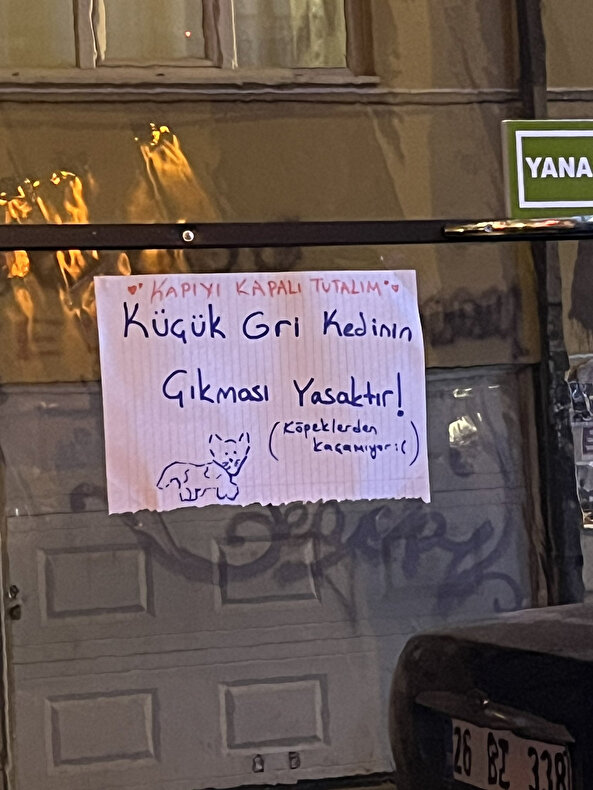 YANA
♥ KAPIYI KAPALI TUTALIM ♥
Küçük Gri Kedinin
Çıkması Yasaktır!
(Köpeklerden
kaçamıyor:()
26 BZ 338